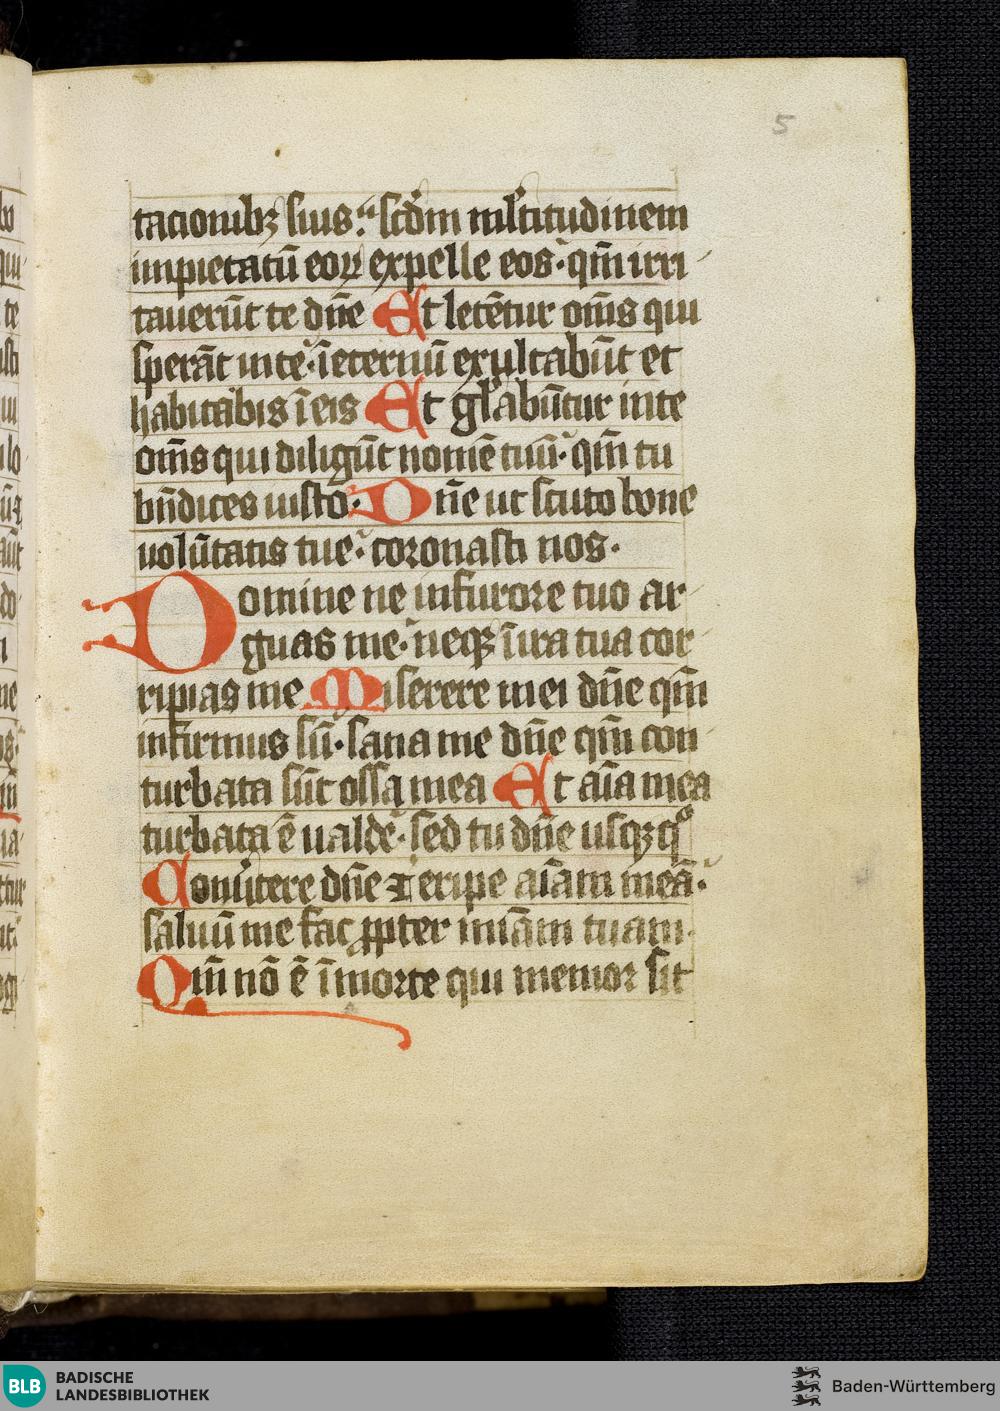 5
tacionibꝫ suis. scd̄m ml̓titudinem
impietatū eoꝝ expelle eos. qm̄ irri
tauerūt te dn̄e Et letēt̄ur om̄s qui
sperāt in te. īeternū exultabūt et
habitabis ī eis Et gl̓abūtur in te
om̄s qui diligūt nomē tuū. qm̄ tu
bn̄dices iusto. Dn̄e ut scuto bone
uolūtatis tue. coronasti nos.
Domine ne in furore tuo ar
guas me. neqꝫ ī ira tua cor
ripias me Miserere mei dn̄e qm̄
infirmus sū. sana me dn̄e qm̄ con
turbata sūt ossa mea Et aīa mea
turbata ē ualde. sed tu dn̄e usqꝫ qͦ
Conūtere dn̄e ⁊ eripe aīam meā.
saluū me fac ꝓpter mīam tuam.
Qm̄ nō ē ī morte qui memor sit
BLB BADISCHE
LANDESBIBLIOTHEK
Baden-Württemberg